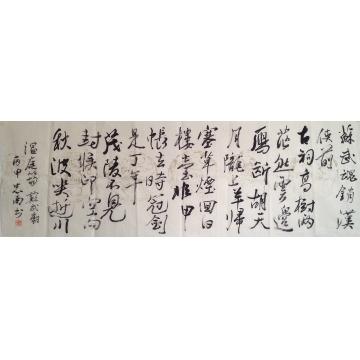 蘇武魂銷漢
使前
古祠高樹兩
茫然雲邊
雁斷胡天
月隴上羊歸
塞草煙回日
樓臺非甲
帳去時冠劍
是丁年
茂陵不見
封侯印空向
秋波哭逝川
温庭筠蘇武廟
丙申忠南书